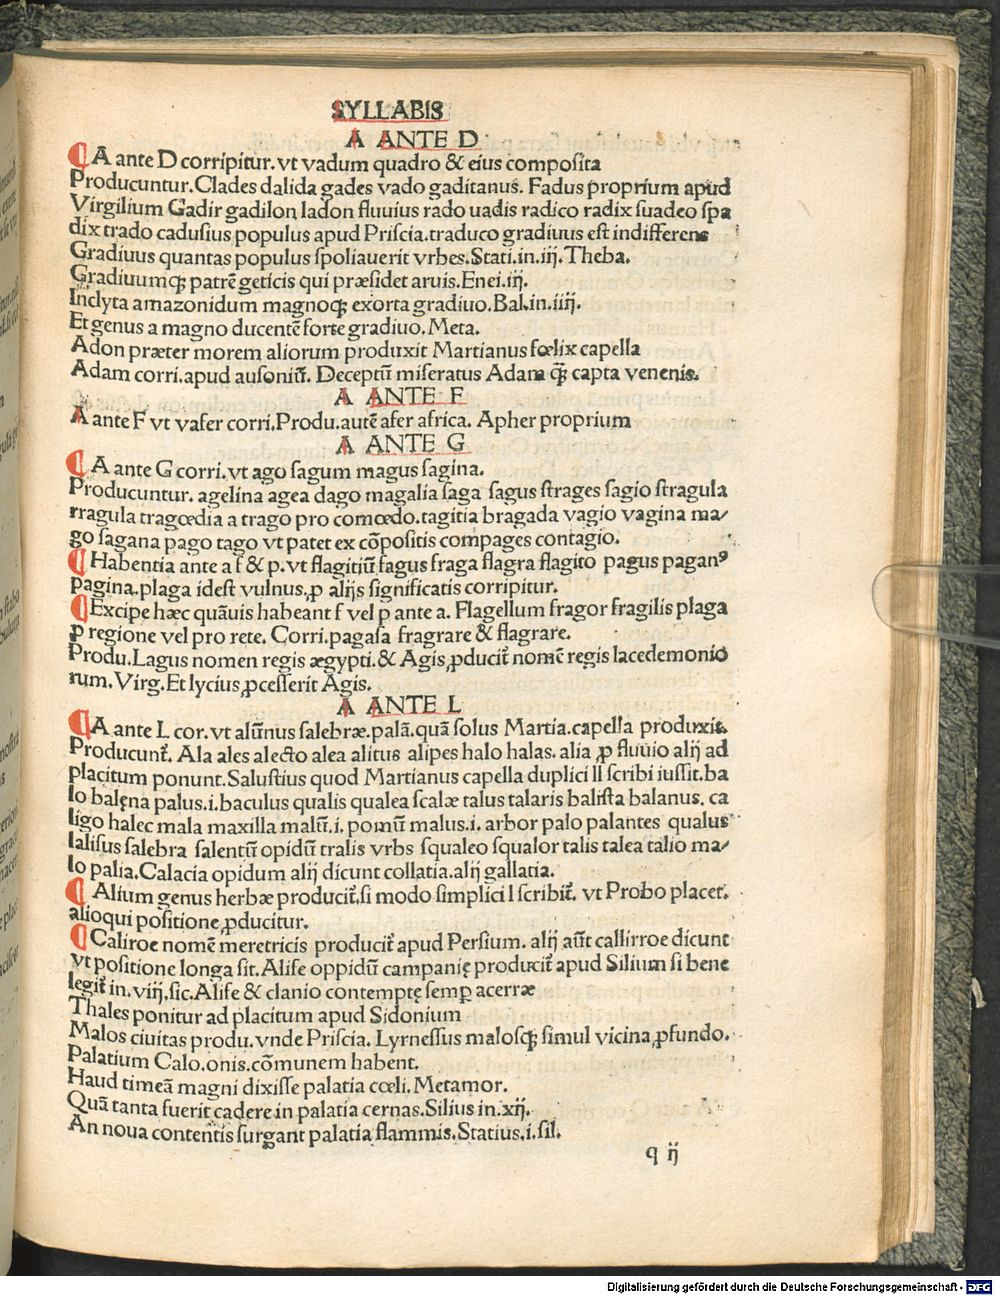 SYLLABIS
A ANTE D
A ante D corripitur. vt vadum quadro & eius composita
Producuntur. Clades dalida gades vado gaditanus. Fadus proprium apud
Virgilium Gadir gadilon ladon fluuius rado uadis radico radix suadeo spa
dix trado cadusius populus apud Priscia. traduco gradiuus est indifferens
Gradiuus quantas populus spoliauerit vrbes. Stati. in. iij. Theba.
Gradiuumqꝫ patrē geticis qui præsidet aruis. Enei. iij.
Inclyta amazonidum magnoqꝫ exorta gradiuo. Bal. in. iiij.
Et genus a magno ducentē forte gradiuo. Meta.
Adon præter morem aliorum produxit Martianus fœlix capella
Adam corri. apud ausoniū. Deceptū miseratus Adam q̄ꝫ capta venenis.
A ANTE F
A ante F vt vafer corri. Produ. autē afer africa. Apher proprium
A ANTE G
A ante G corri. vt ago sagum magus sagina.
Producuntur. agelina agea dago magalia saga sagus strages sagio stragula
rragula tragœdia a trago pro comœdo. tagitia bragada vagio vagina ma/
go sagana pago tago vt patet ex cōpositis compages contagio.
Habentia ante a f & p. vt flagitiū fagus fraga flagra flagito pagus paganꝰ
pagina. plaga idest vulnus. ꝓ alijs significatis corripitur.
Excipe hæc quāuis habeant f vel p ante a. Flagellum fragor fragilis plaga
ꝓ regione vel pro rete. Corri. pagasa fragrare & flagrare.
Produ. Lagus nomen regis ægypti. & Agis ꝓducit̄ nomē regis lacedemonio
rum. Virg. Et lycius ꝓcesserit Agis.
A ANTE L
A ante L cor. vt alūnus salebræ. palā. quā solus Martia. capella produxit.
Producunt̄. Ala ales alecto alea alitus alipes halo halas. alia ꝓ fluuio alij ad
placitum ponunt. Salustius quod Martianus capella duplici ll scribi iussit. ba
lo balęna palus. i. baculus qualis qualea scalæ talus talaris balista balanus. ca
ligo halec mala maxilla malū. i. pomū malus. i. arbor palo palantes qualus
lalisus salebra salentū opidū tralis vrbs squaleo squalor talis talea talio ma/
lo palia. Calacia opidum alij dicunt collatia. alij gallatia.
Alium genus herbæ producit̄. si modo simplici l scribit̄. vt Probo placet.
alioqui positione ꝓducitur.
Caliroe nomē meretricis producit̄ apud Persium. alij aūt callirroe dicunt
vt positione longa sit. Alife oppidū campanię producit̄ apud Silium si bene
legit̄ in. viij. sic. Alife & clanio contemptę semꝑ acerræ
Thales ponitur ad placitum apud Sidonium
Malos ciuitas produ. vnde Priscia. Lyrnessus malosqꝫ simul vicina ꝓfundo.
Palatium Calo. onis. cōmunem habent.
Haud timeā magni dixisse palatia cœli. Metamor.
Quā tanta fuerit cadere in palatia cernas. Silius in. xij.
An noua contentis surgant palatia flammis. Statius. i. sil.
q ij
Digitalisierung gefördert durch die Deutsche Forschungsgemeinschaft - DFG